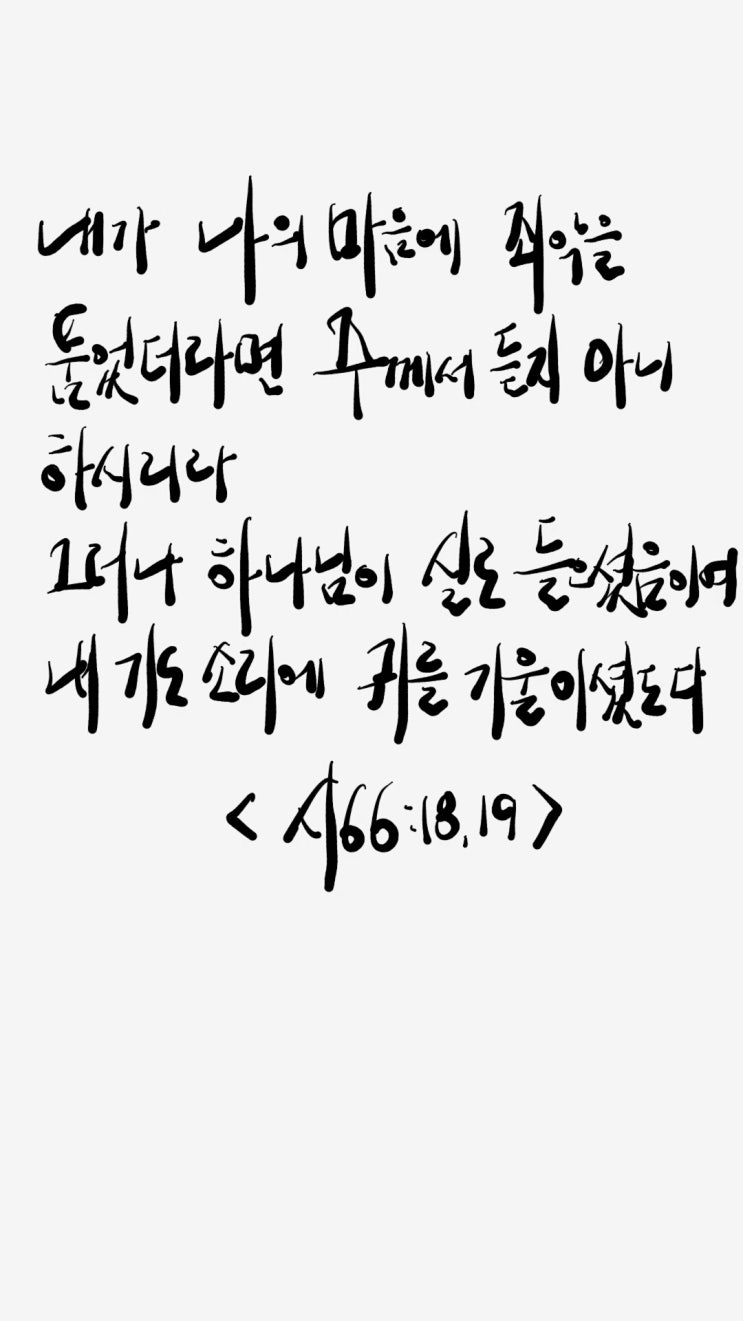 내가 나의 마음에 죄악을
품었더라면 주께서 듣지 아니
하시리라
그러나 하나님이 실로 들으셨음이여
내 기도 소리에 귀를 기울이셨도다
<시66:18,19>